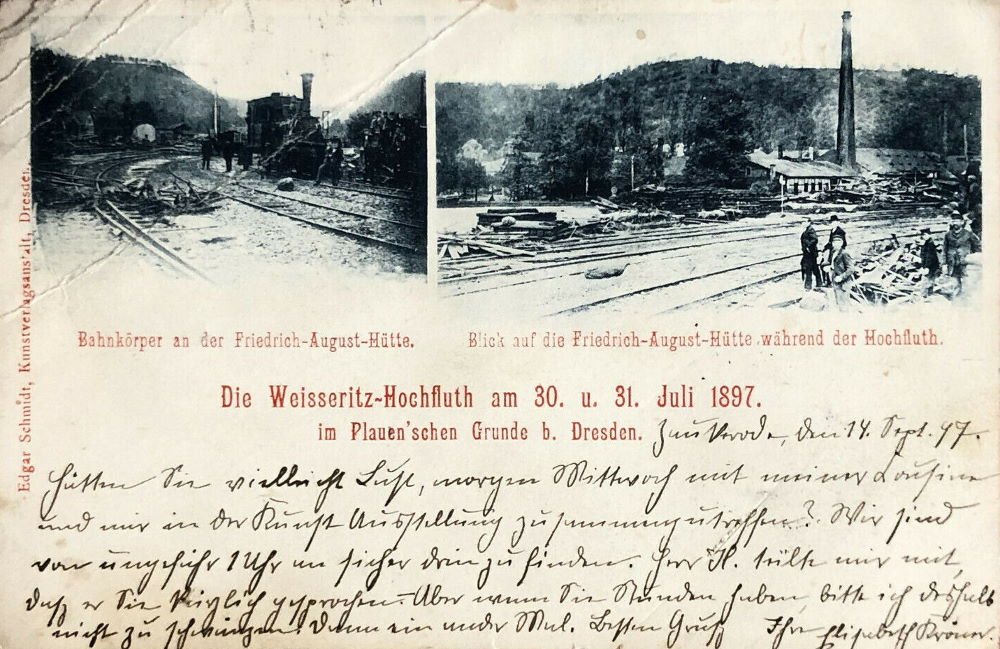 Bahnkörper an der Friedrich-August-Hütte.
Blick auf die Friedrich-August-Hütte während der Hochfluth.
Die Weisseritz-Hochfluth am 30. u. 31. Juli 1897.
im Plauen'schen Grunde b. Dresden.
Edgar Schmidt, Kunstverlagsanstalt, Dresden.
den 14. Sept. 97.
Hätten Sie vielleicht Lust, morgen Mittwoch mit meiner Cousine
und mir in der Kunst Ausstellung zusammenzutreffen? Wir sind
von ungefähr 1 Uhr an sicher drin zu finden. Herr H. teilte mir mit,
daß er Sie kürzlich gesprochen. – Aber wenn Sie Stunden haben, bitte ich deshalb
nicht zu schwänzen. Dann ein ander Mal. Besten Gruß Ihre Elisabeth Kröner.